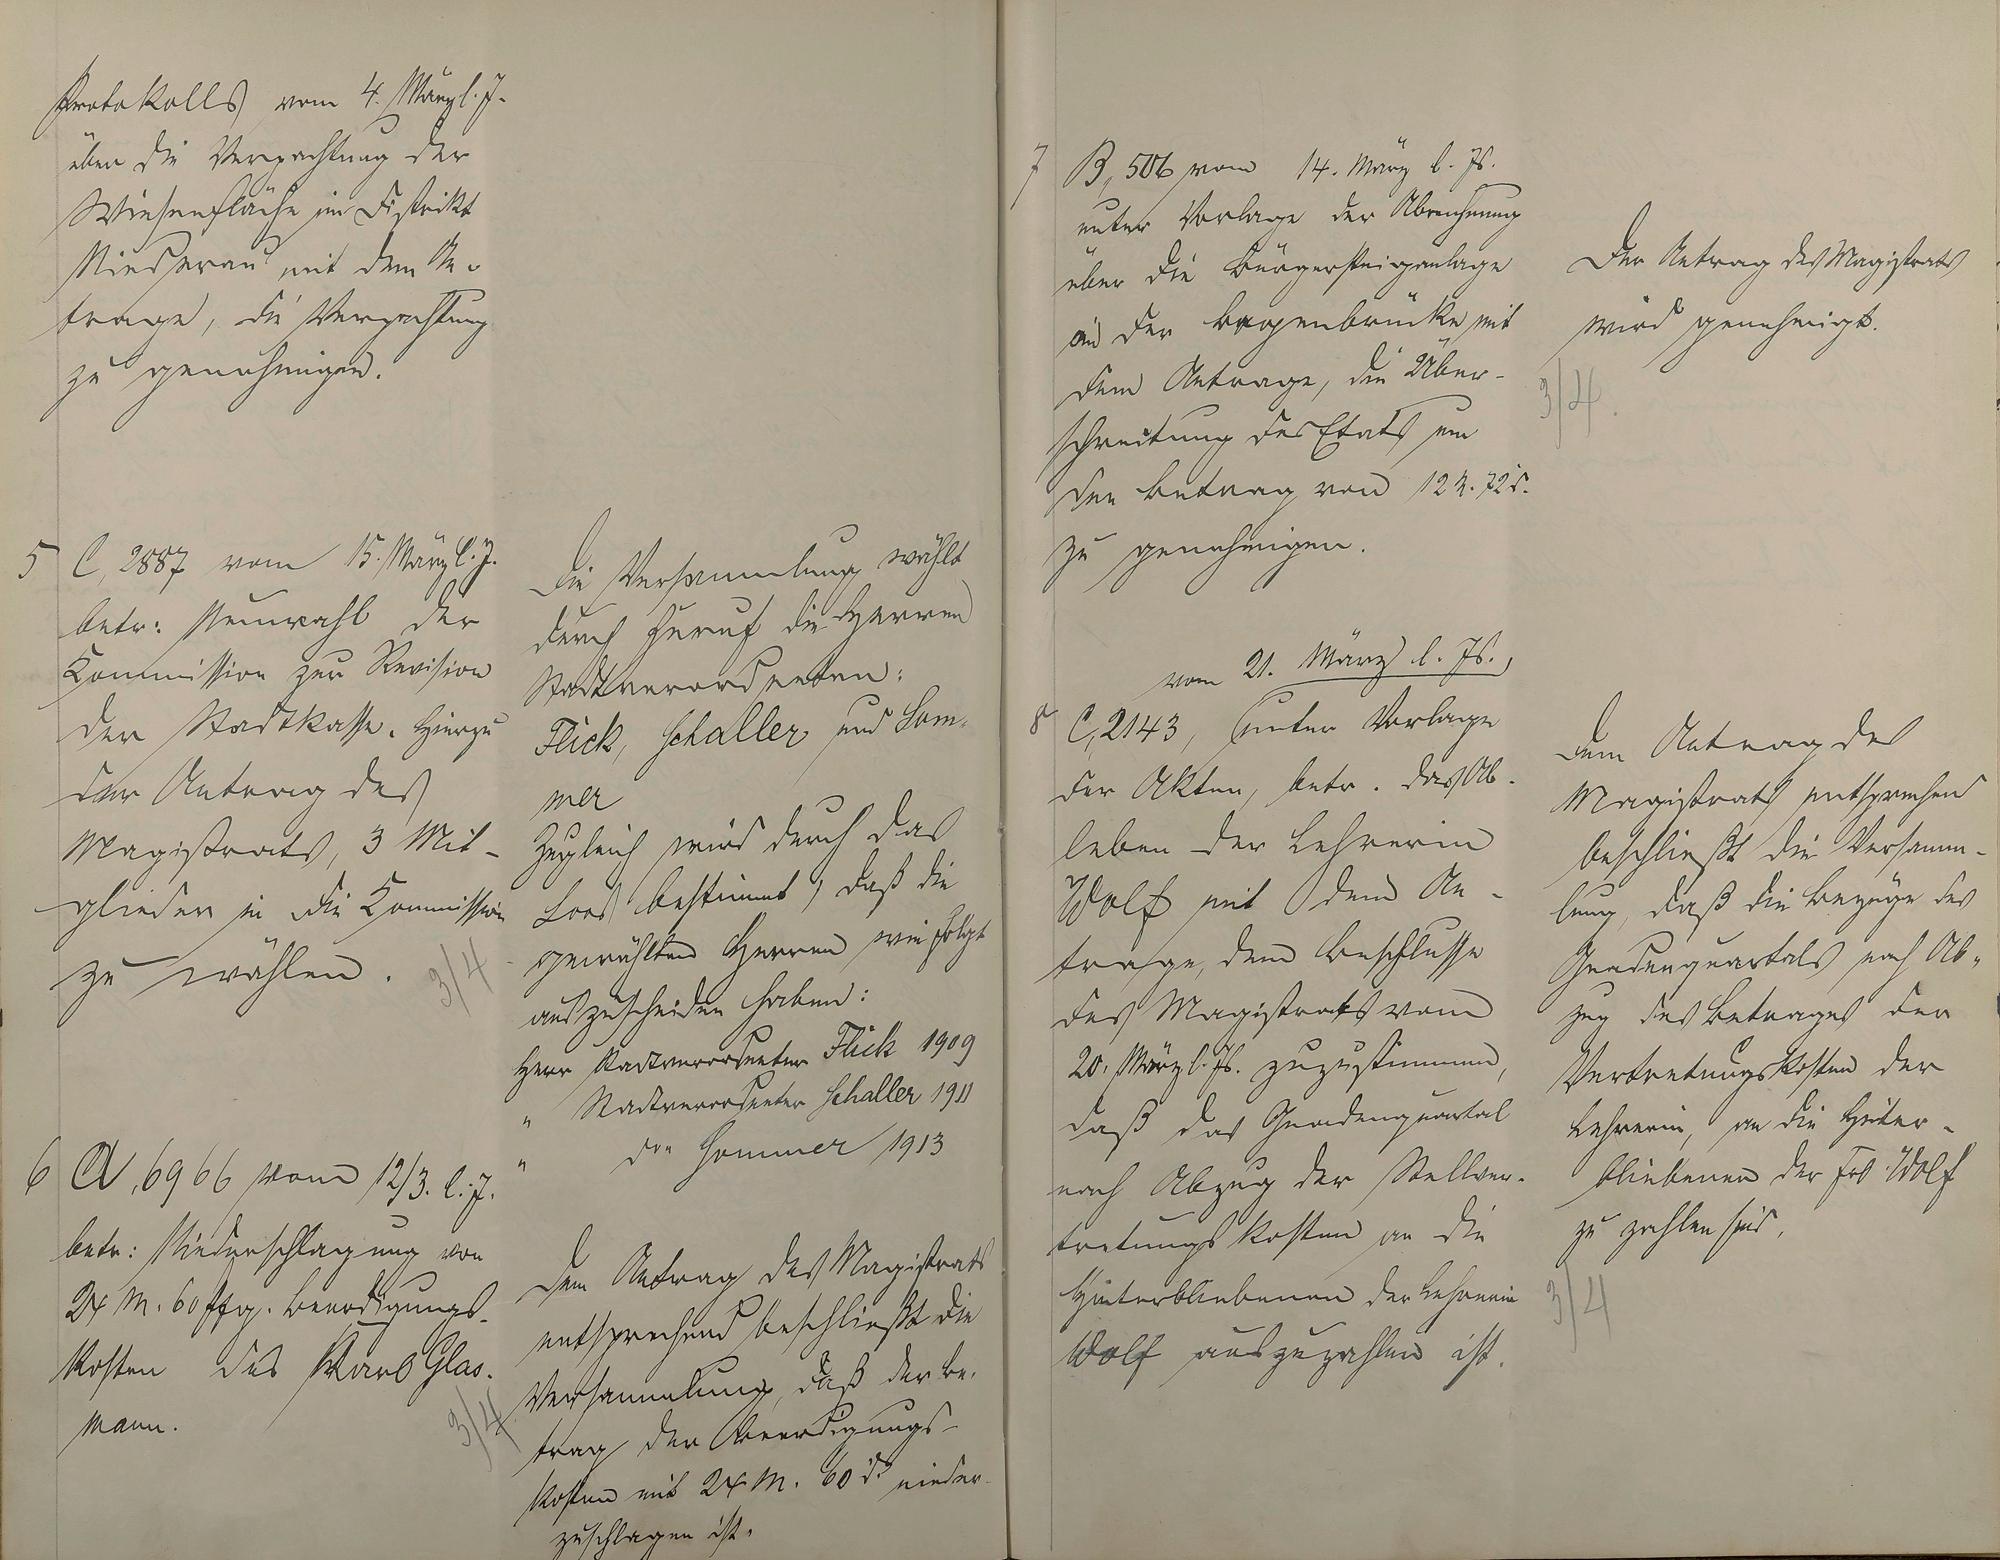 Protokolls vom 4. März l. J.
über die Verpachtung der
Wiesenfläche im Distrikt
Niederau mit dem An-
trage, die Verpachtung
zu genehmigen.
5 C, 2887 vom 15. März l. J.
betr: Neuwahl der
Commission zur Revision
der Stadtkasse. Hierzu
der Antrag des
Magistrats, 3 Mit-
glieder in die Commission
zu wählen.
3/4
6 A, 6966 vom 12/3. l. J.
betr: Niederschlagung von
24 M. 60 Pfg. Beerdigungs-
kosten des Karl Glas-
mann.
3/4
Die Versammlung wählt
durch Zuruf die Herren
Stadtverordneten:
Flick, Schaller und Som-
mer
Zugleich wird durch das
Loos bestimmt, daß die
gewählten Herren wie folgt
auszuscheiden haben:
Herr Stadtverordneter Flick 1909
" Stadtverordneter Schaller 1911
" do Sommer 1913
Dem Antrag des Magistrats
entsprechend beschließt die
Versammlung, daß der Be-
trag der Beerdigungs-
kosten mit 24 M. 60 d. nieder-
zuschlagen ist.
7 B, 506 vom 14. März l. Js.
unter Vorlage der Abrechnung
über die Bürgersteiganlage
an der Bogenbrücke mit
dem Antrage, die Über-
schreitung des Etats um
den Betrag von 12 M. 72 d.
zu genehmigen.
Der Antrag des Magistrats
wird genehmigt.
3/4.
vom 21. März l. Js.,
8 C, 2143, unter Vorlage
der Akten, betr. das Ab-
leben der Lehrerin
Wolf mit dem An-
trage, dem Beschlusse
des Magistrats vom
20. März l. Js. zuzustimmen,
daß das Gnadenquartal
nach Abzug der Stellver-
tretungskosten an die
Hinterbliebenen der Lehrerin
Wolf auszuzahlen ist.
Dem Antrag des
Magistrats entsprechend
beschließt die Versamm-
lung, daß die Bezüge des
Gnadenquartals nach Ab-
zug des Betrages der
Vertretungskosten der
Lehrerin, an die Hinter-
bliebenen der Frl. Wolf
zu zahlen sind.
3/4